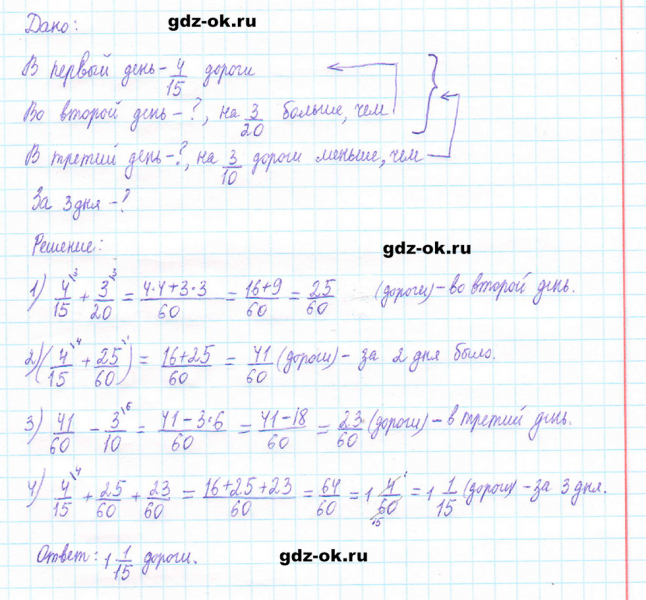 gdz-ok.ru
Дано:
В первый день - 4/15 дороги
Во второй день - ?, на 3/20 больше, чем
В третий день - ?, на 3/10 дороги меньше, чем
За 3 дня - ?
Решение:
gdz-ok.ru
1) 4/15 \3 + 3/20 \3 = (4·4+3·3)/60 = (16+9)/60 = 25/60 (дороги) - во второй день.
2) (4/15 \4 + 25/60 \1) = (16+25)/60 = 41/60 (дороги) - за 2 дня было.
3) 41/60 - 3/10 \6 = (41-3·6)/60 = (41-18)/60 = 23/60 (дороги) - в третий день.
4) 4/15 \4 + 25/60 + 23/60 = (16+25+23)/60 = 64/60 = 1 4/60 1 15 = 1 1/15 (дороги) - за 3 дня.
Ответ: 1 1/15 дороги.
gdz-ok.ru